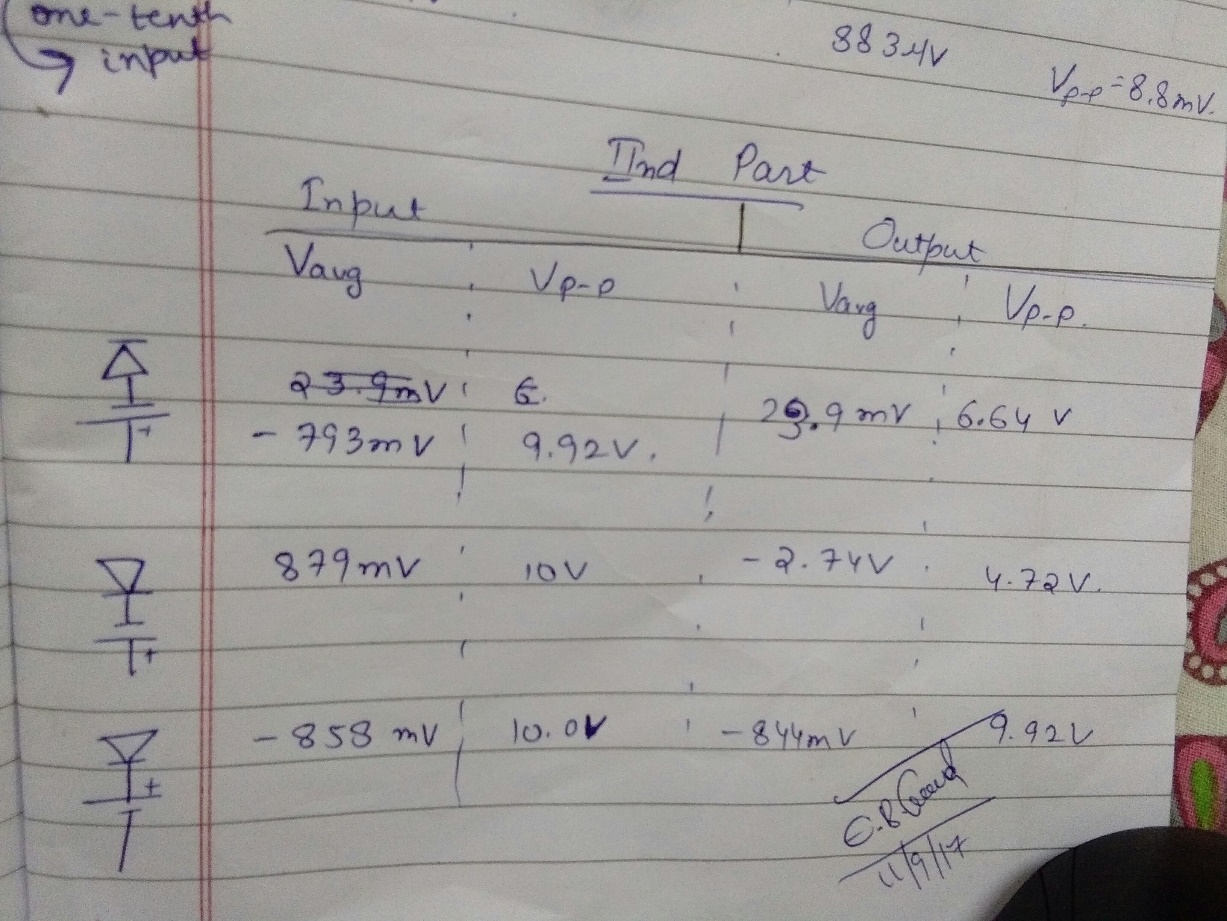 one-tenth
input
883μV
Vp-p = 8.8mV.
IInd Part
Input
Output
Vavg Vp-p Vavg Vp-p.
23.9mV 6.
-793mV 9.92V. 23.9mV 6.64 V
+
879mV 10V -2.74V 4.72V.
+
-858 mV 10.0V -844mV 9.92V
+
11/9/17